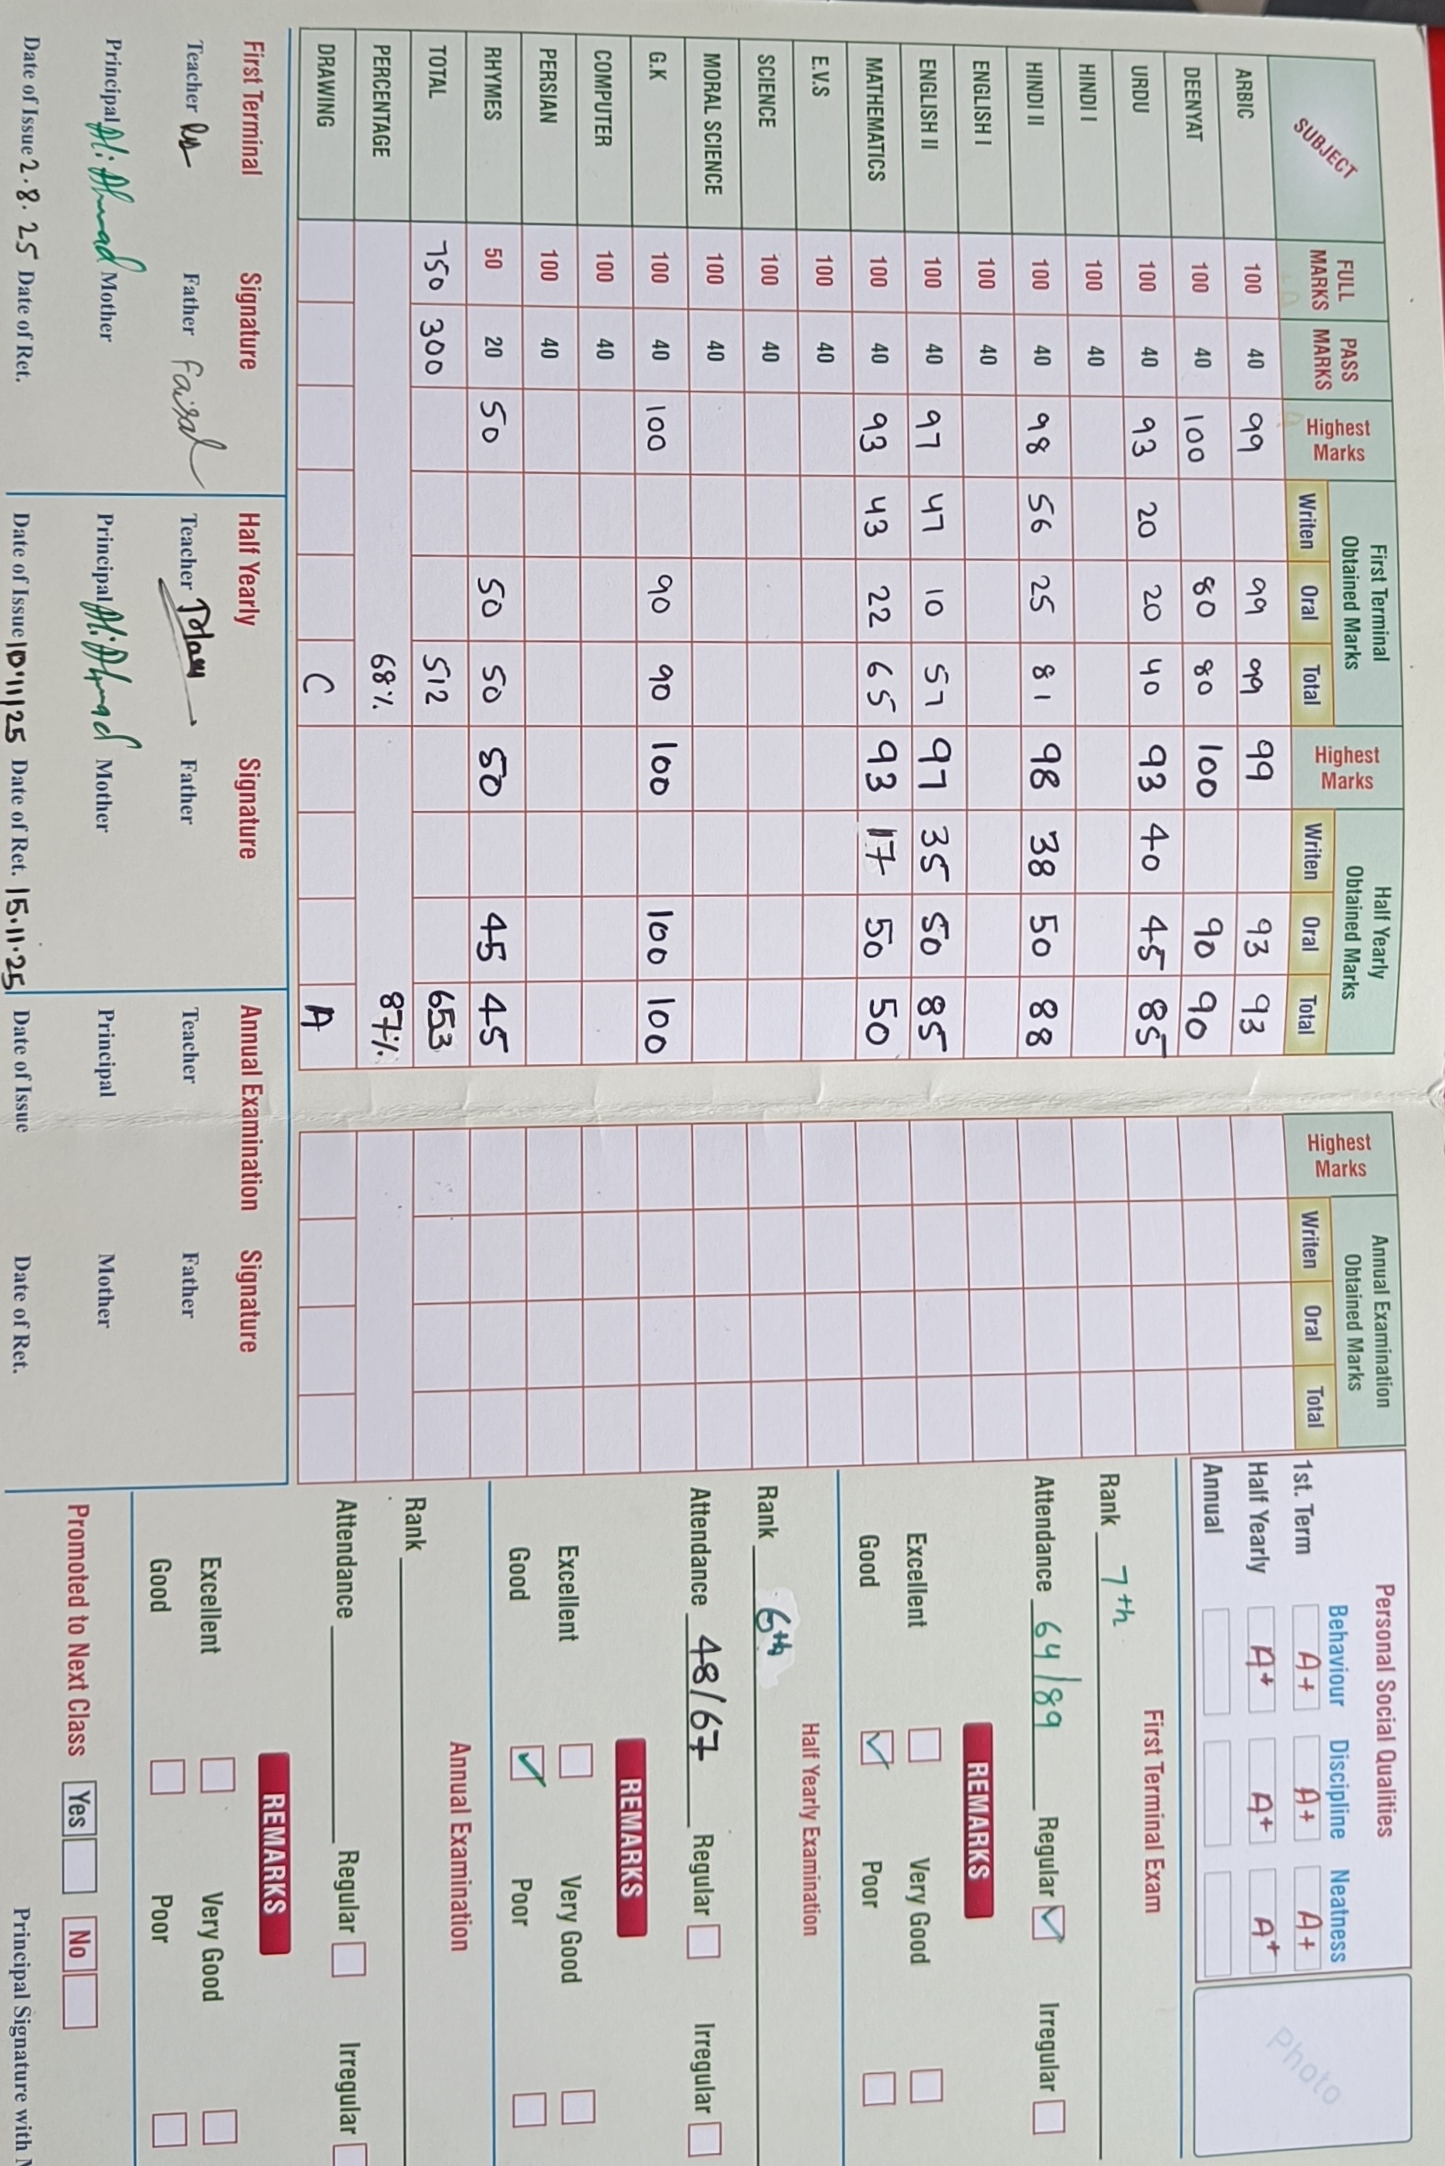 SUBJECT FULL MARKS PASS MARKS Highest Marks First Terminal Obtained Marks Writen Oral Total Highest Marks Half Yearly Obtained Marks Writen Oral Total Highest Marks Annual Examination Obtained Marks Writen Oral Total
ARBIC 100 40 99 99 99 99 93 93
DEENYAT 100 40 100 80 80 100 90 90
URDU 100 40 93 20 20 40 93 40 45 85
HINDI I 100 40
HINDI II 100 40 98 56 25 81 98 38 50 88
ENGLISH I 100 40
ENGLISH II 100 40 97 47 10 57 97 35 50 85
MATHEMATICS 100 40 93 43 22 65 93 17 50 50
E.V.S 100 40
SCIENCE 100 40
MORAL SCIENCE 100 40
G.K 100 40 100 90 90 100 100 100
COMPUTER 100 40
PERSIAN 100 40
RHYMES 50 20 50 50 50 50 45 45
TOTAL 750 300 512 653
PERCENTAGE 68% 87%
DRAWING C A
First Terminal Signature Half Yearly Signature Annual Examination Signature
Teacher Father Faisal Teacher Father Teacher Father
Principal Ali Ahmad Mother Principal Ali Ahmad Mother Principal Mother
Date of Issue 2.8.25 Date of Ret. Date of Issue 10.11.25 Date of Ret. 15.11.25 Date of Issue Date of Ret.
Personal Social Qualities
Behaviour Discipline Neatness
1st. Term A+ A+ A+
Half Yearly A+ A+ A+
Annual
Photo
First Terminal Exam
Rank 7th
Attendance 64/89 Regular ✓ Irregular
REMARKS
Excellent Very Good
Good ✓ Poor
Half Yearly Examination
Rank 6th
Attendance 48/67 Regular Irregular
REMARKS
Excellent Very Good
Good ✓ Poor
Annual Examination
Rank
Attendance Regular Irregular
REMARKS
Excellent Very Good
Good Poor
Promoted to Next Class Yes No
Principal Signature with